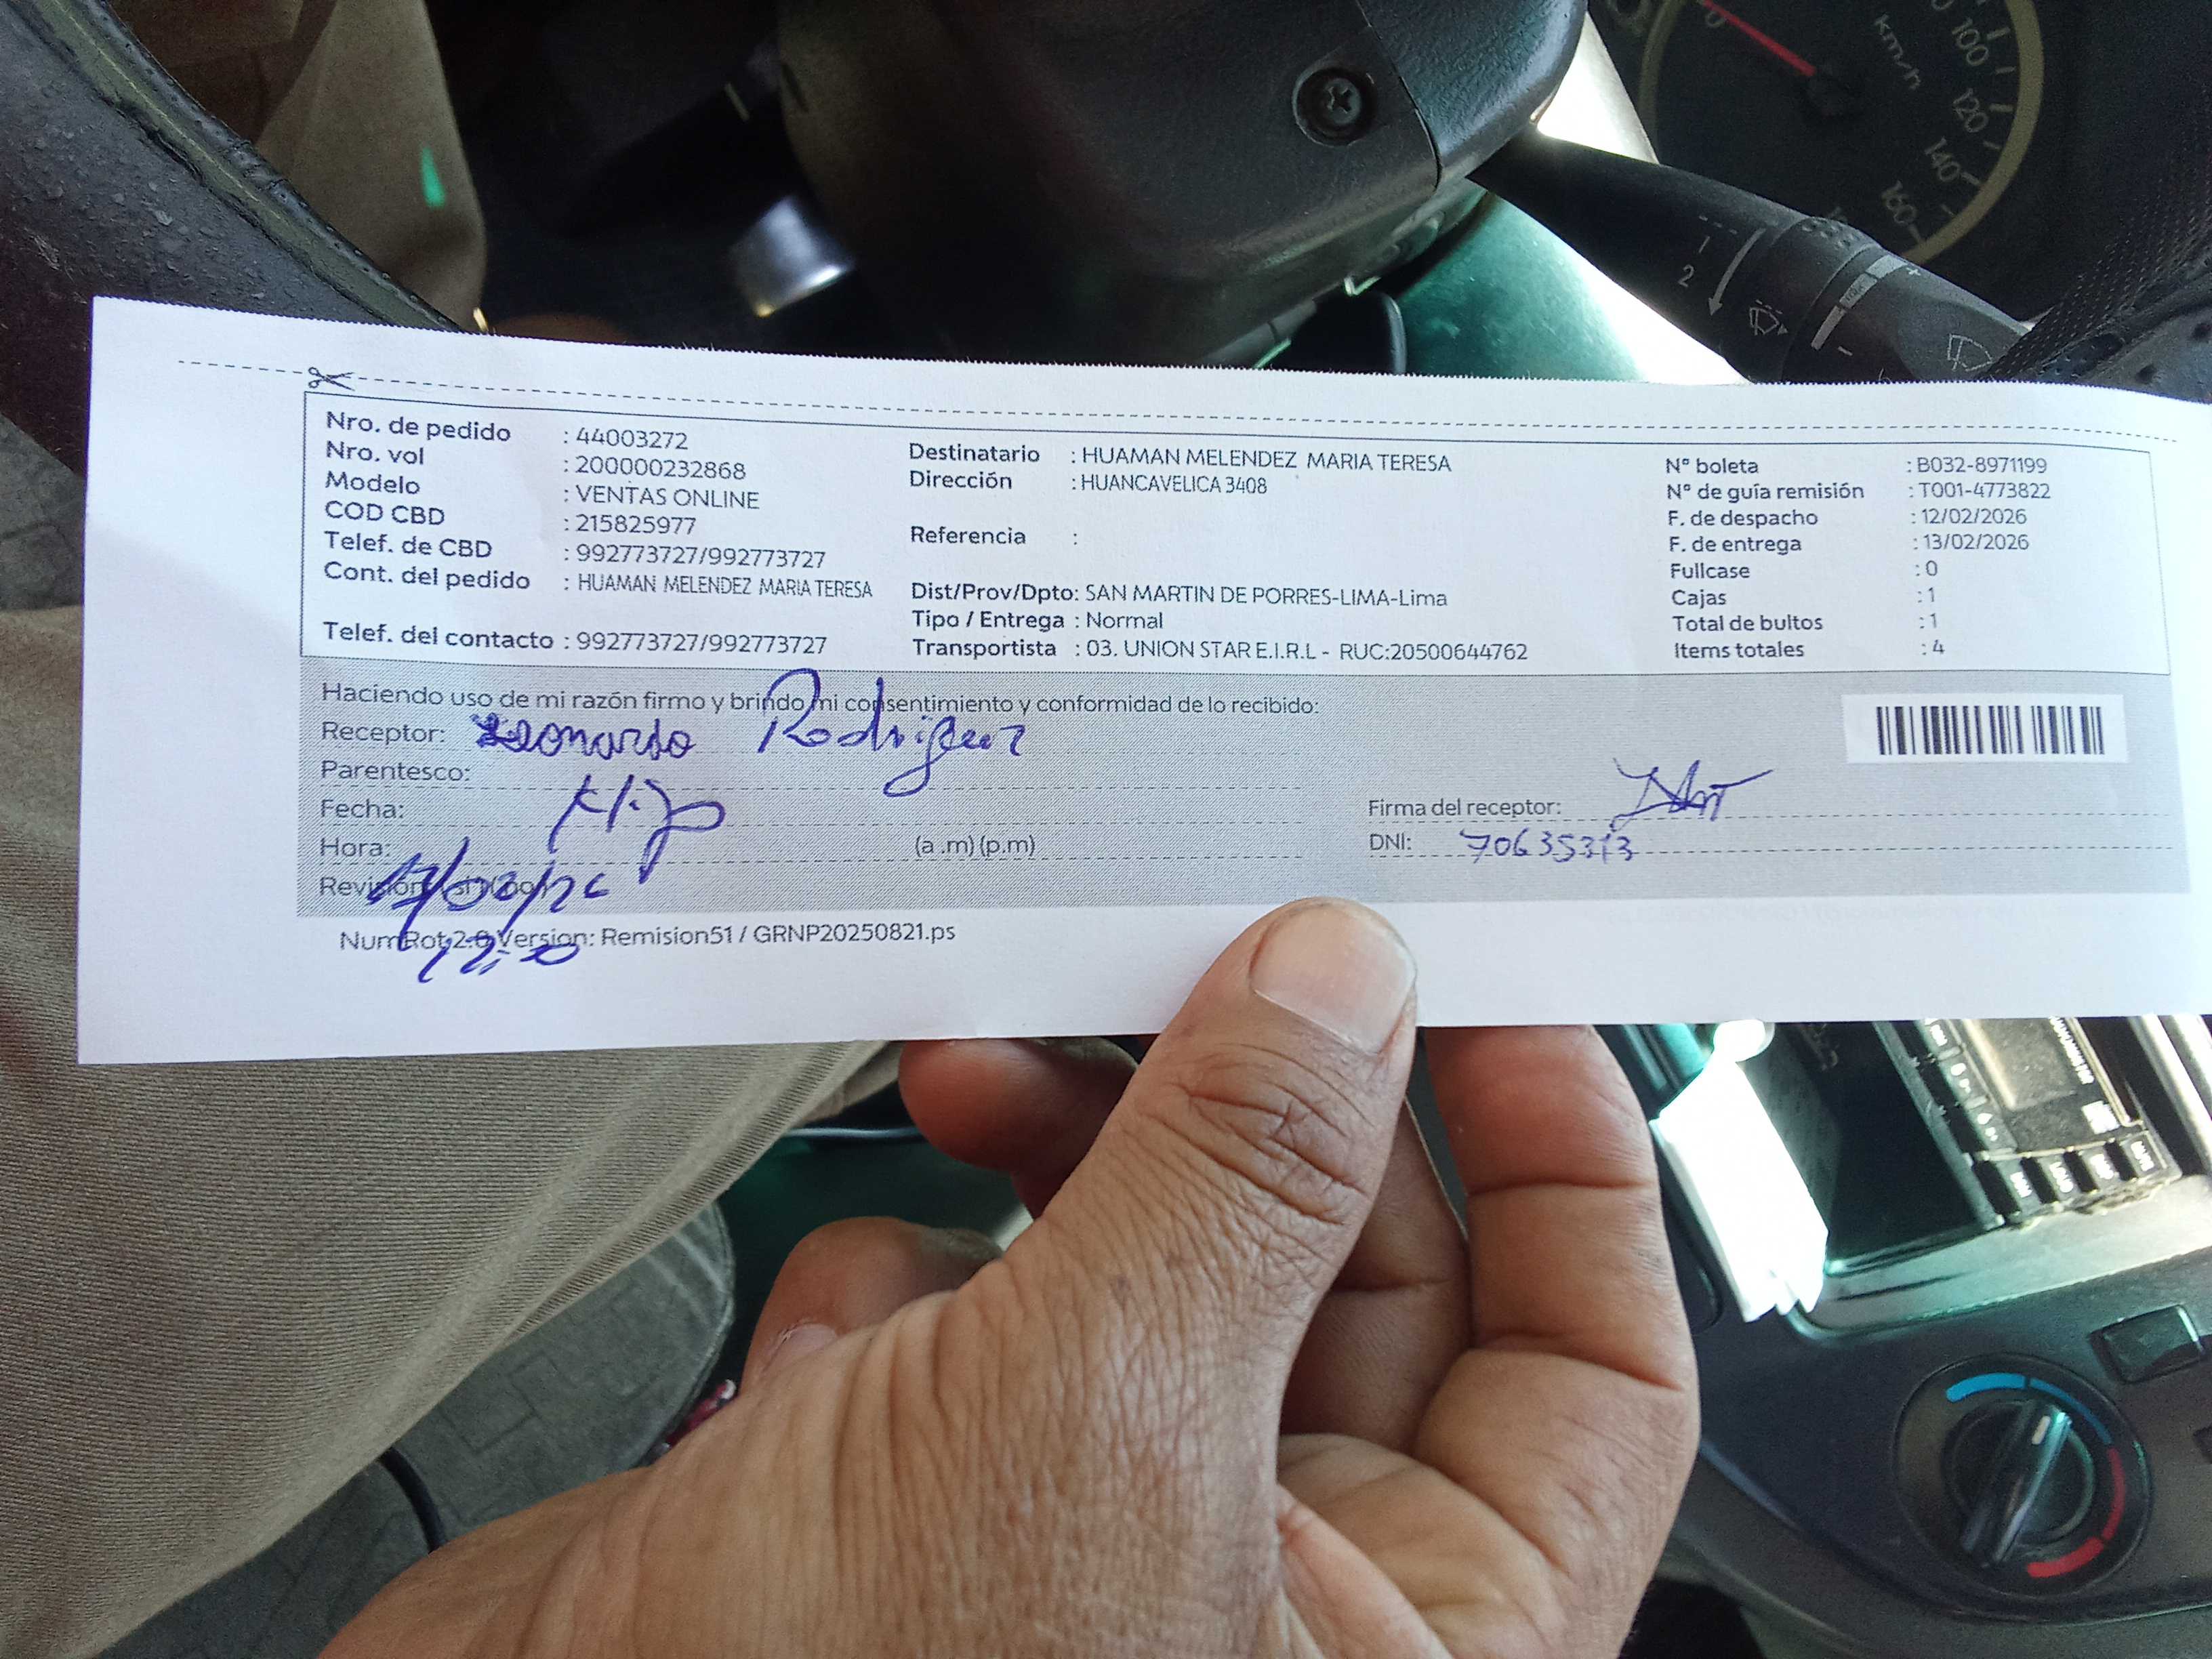 Nro. de pedido : 44003272
Nro. vol : 200000232868
Modelo : VENTAS ONLINE
COD CBD : 215825977
Telef. de CBD : 992773727/992773727
Cont. del pedido : HUAMAN MELENDEZ MARIA TERESA
Telef. del contacto : 992773727/992773727
Destinatario : HUAMAN MELENDEZ MARIA TERESA
Dirección : HUANCAVELICA 3408
Referencia :
Dist/Prov/Dpto: SAN MARTIN DE PORRES-LIMA-Lima
Tipo / Entrega : Normal
Transportista : 03. UNION STAR E.I.R.L - RUC:20500644762
N° boleta : B032-8971199
N° de guía remisión : T001-4773822
F. de despacho : 12/02/2026
F. de entrega : 13/02/2026
Fullcase : 0
Cajas : 1
Total de bultos : 1
Items totales : 4
Haciendo uso de mi razón firmo y brindo mi consentimiento y conformidad de lo recibido:
Receptor: Leonardo Rodriguez
Parentesco: Hijo
Fecha:
Hora: (a .m) (p.m)
Revisión: (si) (no)
/02/26
NumRot 2.0 Version: Remision51 / GRNP20250821.ps
Firma del receptor:
DNI: 70635313
km/h
100
120
140
160
1
2